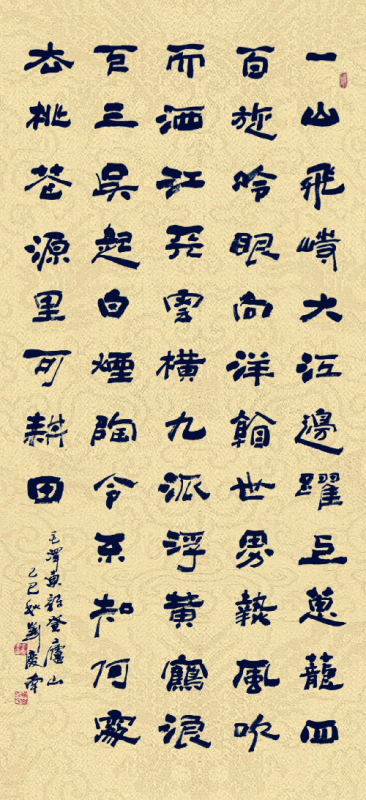 一山飛峙大江邊躍上蔥蘢四
百旋冷眼向洋看世界熱風吹
雨洒江天雲橫九派浮黃鶴浪
下三吳起白煙陶令不知何處
去桃花源里可耕田
毛澤東詩登廬山
乙巳秋劉慶